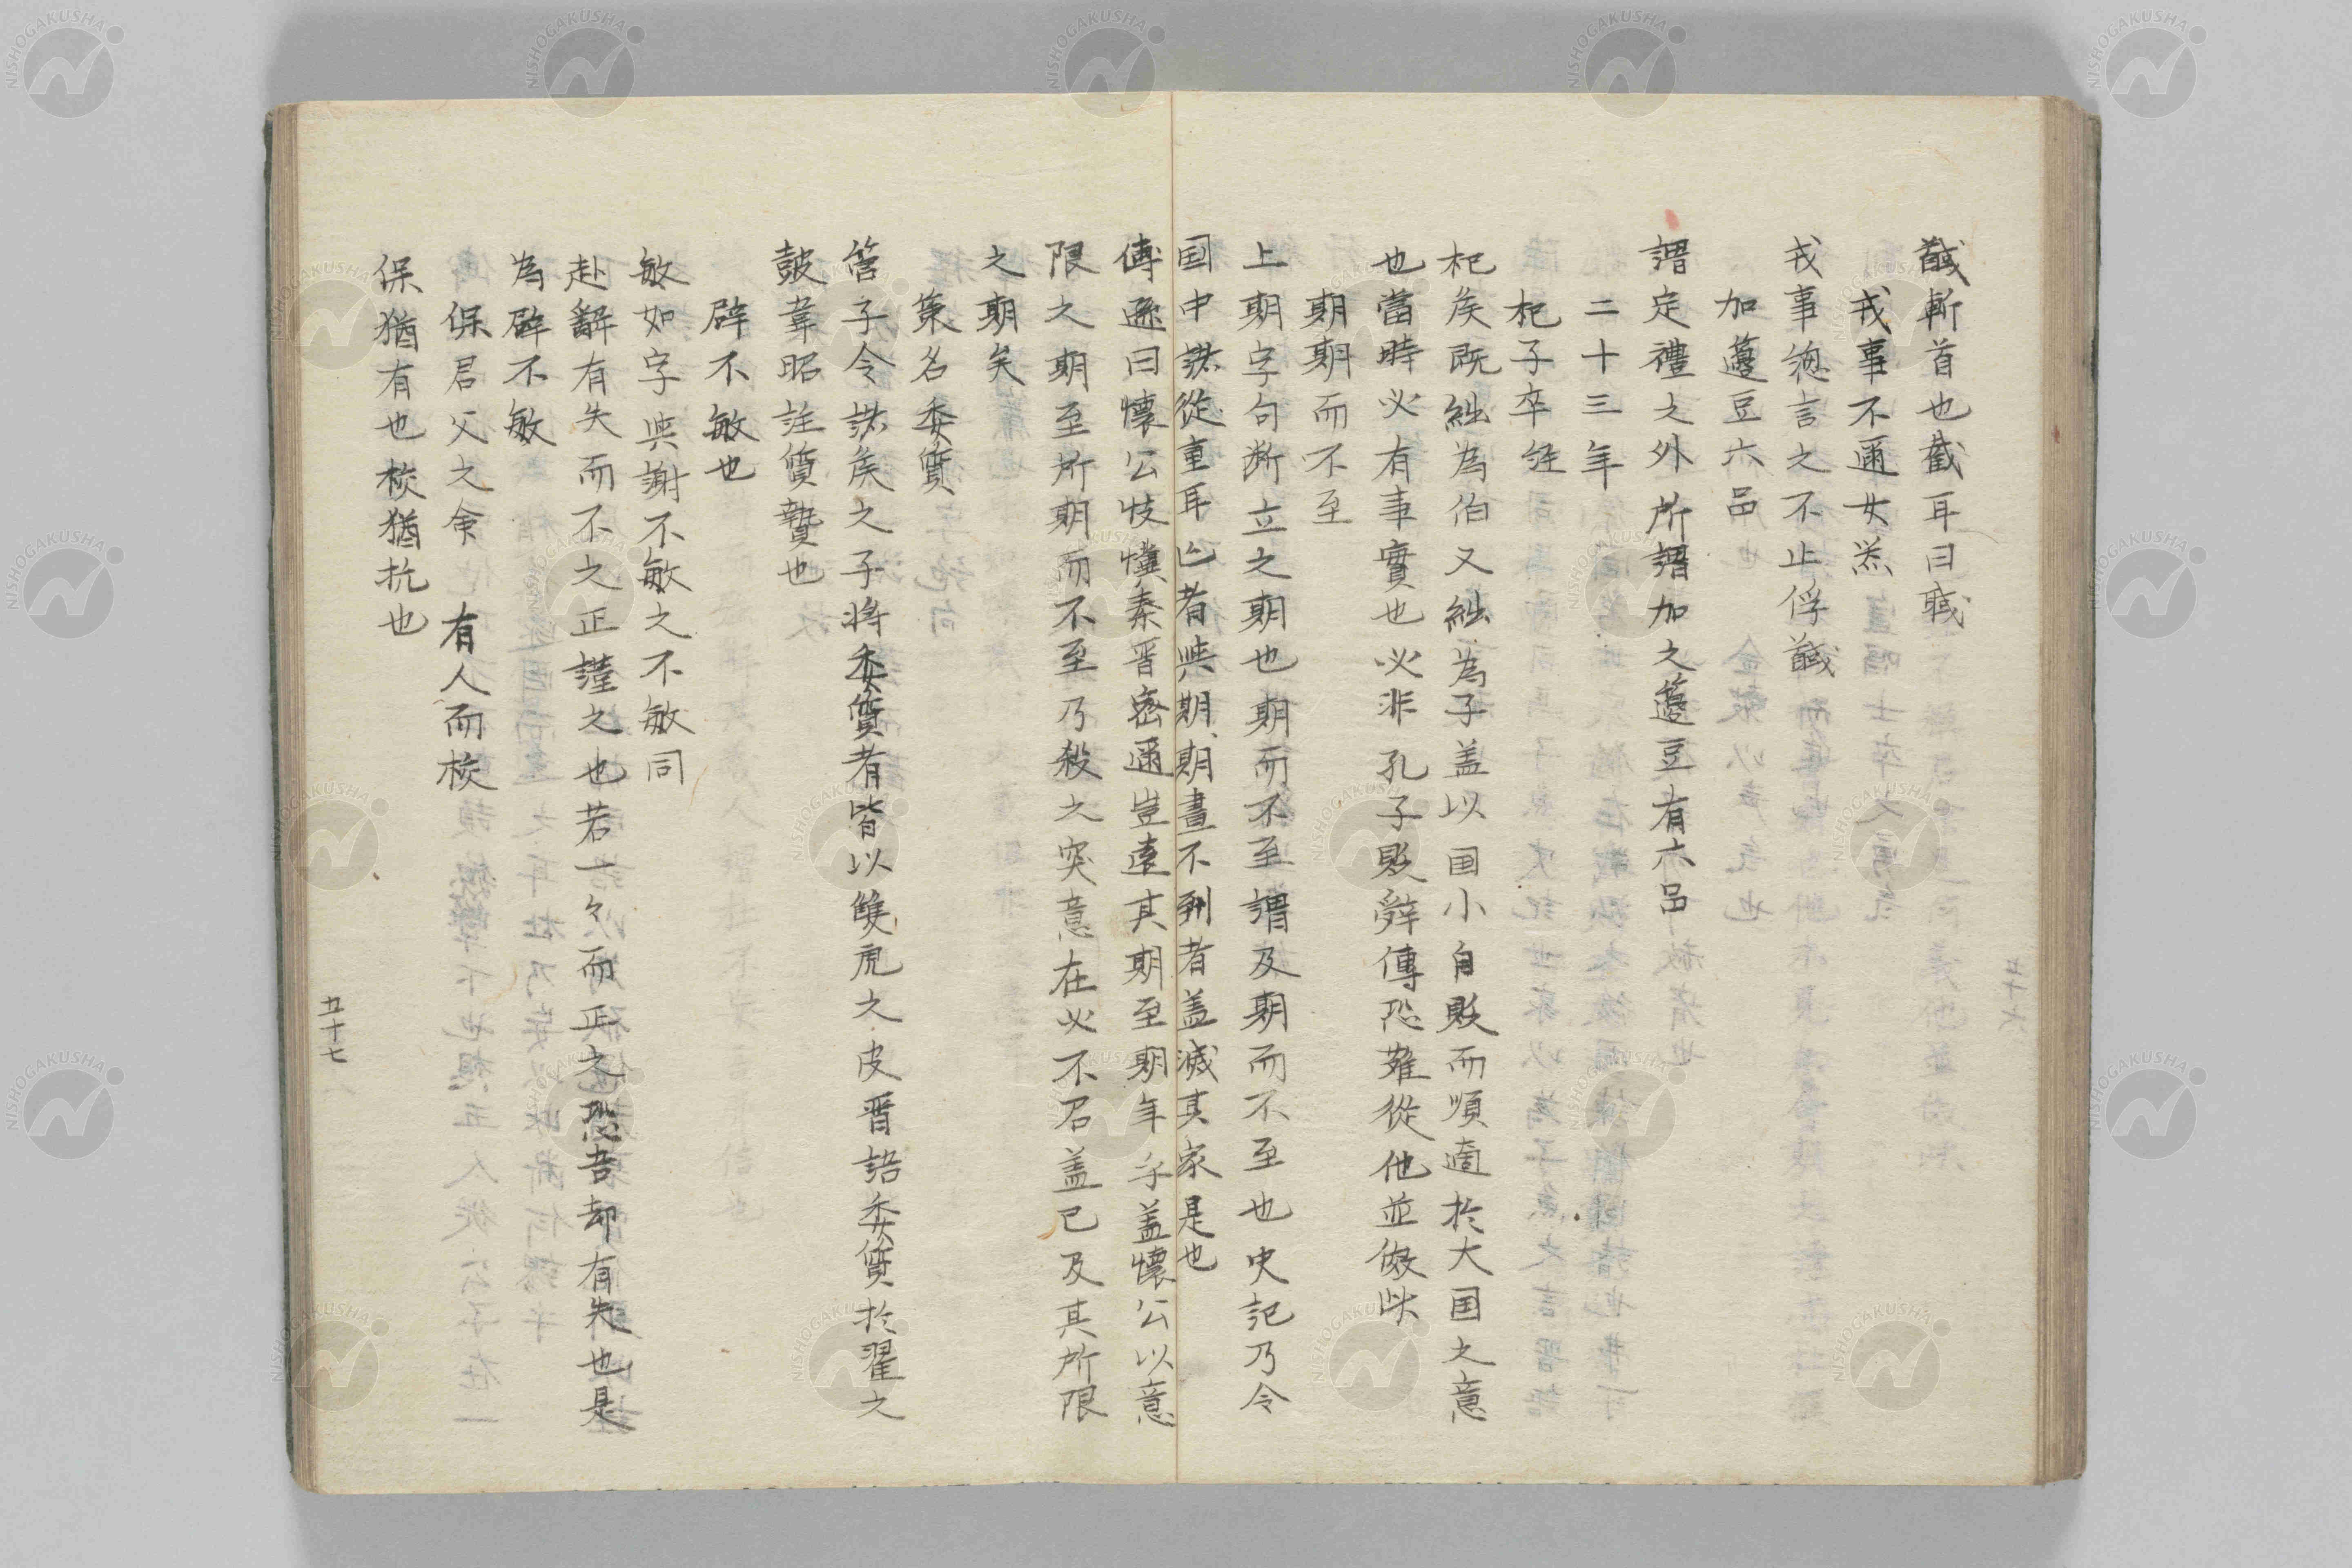 馘斬首也截耳曰聝
戎事不邇女器
戎事總言之不止俘馘
加籩豆六品
謂定禮之外所謂加之籩豆有六品
二十三年
杞子卒経
杞矦既絀為伯又絀為子盖以国小自貶而順適於大国之意
也當時必有事實也必非孔子貶辤傳恐難從他並倣此
期期而不至
上期字句断立之期也期而不至謂及期而不至也史記乃令
国中諸從重耳亾者與期期盡不到者盖滅其家是也
傅遜曰懐公忮懻秦晋密邇豈遠其期至期年乎盖懐公以意
限之期至所期而不至乃殺之突意在必不召盖已及其所限
之期矣
策名委質
管子令諸矦之子將委質者皆以雙虎之皮晋語委質於翟之
鼓韋昭註質贄也
辟不敏也
敏如字與謝不敏之不敏同
赴辭有失而不之正謹之也若一々而正之恐吾却有失也是
為辟不敏
保君父之命 有人而校
保猶有也校猶抗也
五十七